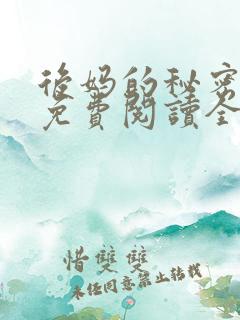 後妈的秘密
免費閱讀全
惜雙雙
未经同意禁止转载